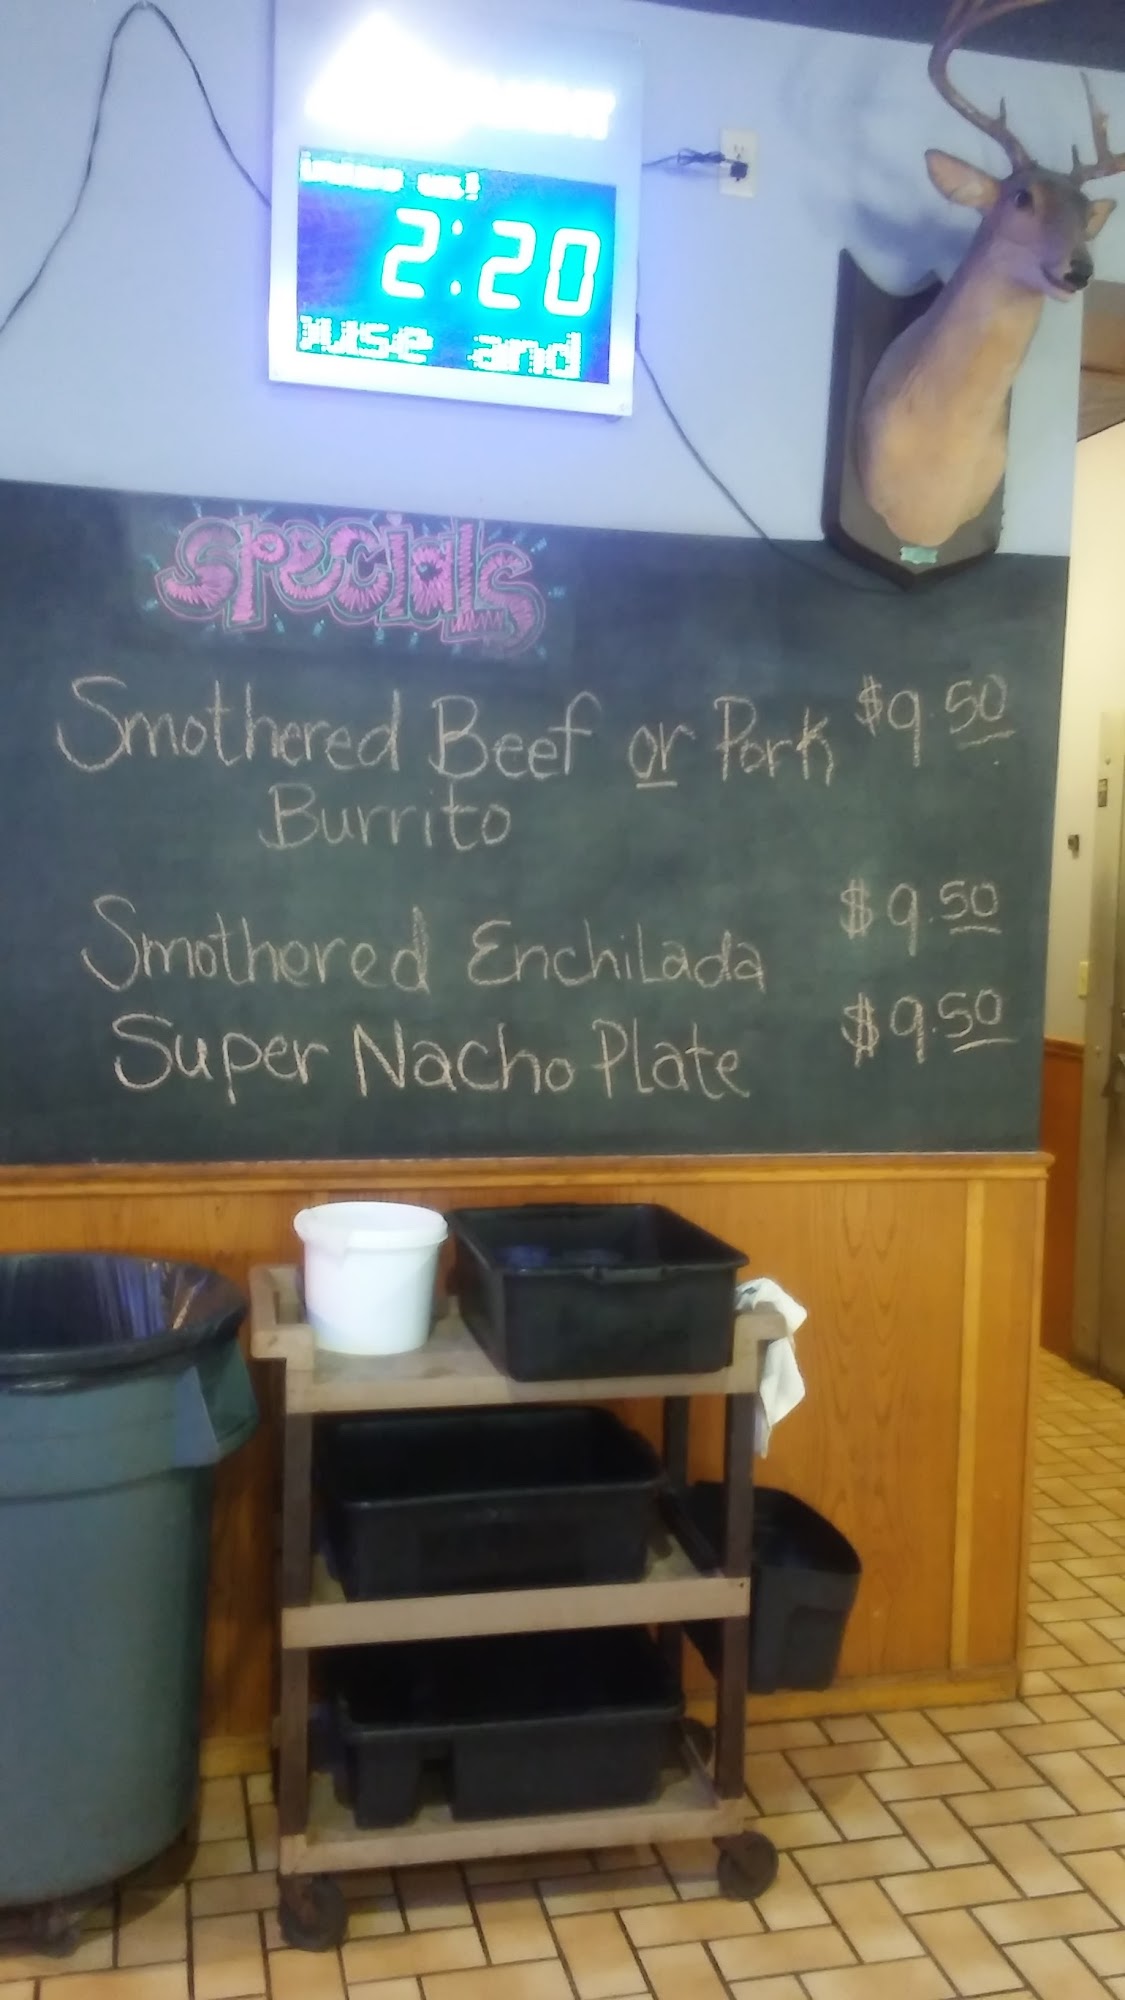 us!
2:20
and
Specials
Smothered Beef or Pork $9.50
Burrito
Smothered Enchilada $9.50
Super Nacho Plate $9.50